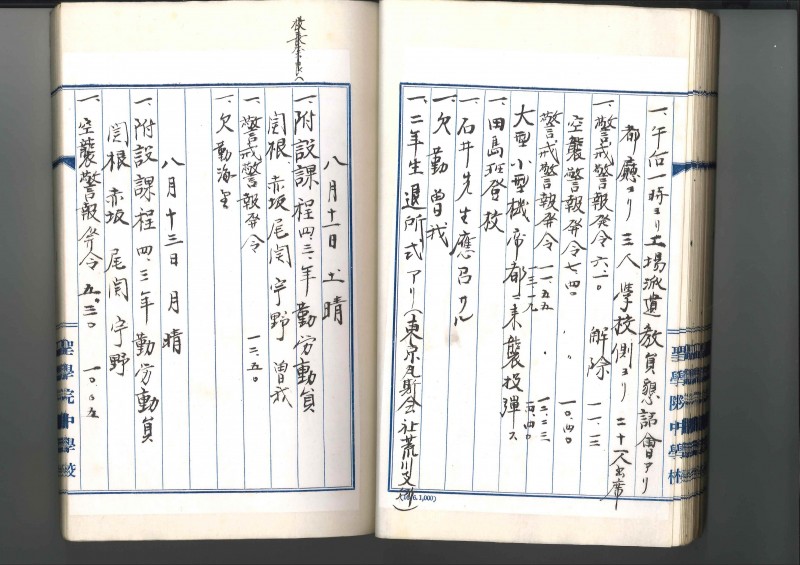 一、午后一時ヨリ工場派遣教員懇話會アリ
都廳ヨリ三人 學校側ヨリ 二十一人出席
一、警戒警報発令 六、一〇 解除 一一、三
空襲警報発令 七、四〇 〃 一〇、四〇
警戒警報発令 一一、五五 〃 一二、二三
一三、一九 〃 一四、四〇
大型小型機帝都ニ来襲投弾ス
一、田島班登校
一、石井先生應召サル
一、欠勤 曽我
一、二年生退所式アリ(東京瓦斯会社荒川支)
聖學院中學校
(6.1,000)
八月十一日 土 晴
一、附設課程四、三年勤労動員
関根 赤坂 尾関 宇野 曽我
一、警戒警報発令 一三、五〇
一、欠勤 海
八月十三日 月 晴
一、附設課程四、三年勤労動員
関根 赤坂 尾関 宇野
一、空襲警報発令 五、三〇
聖學院中學校